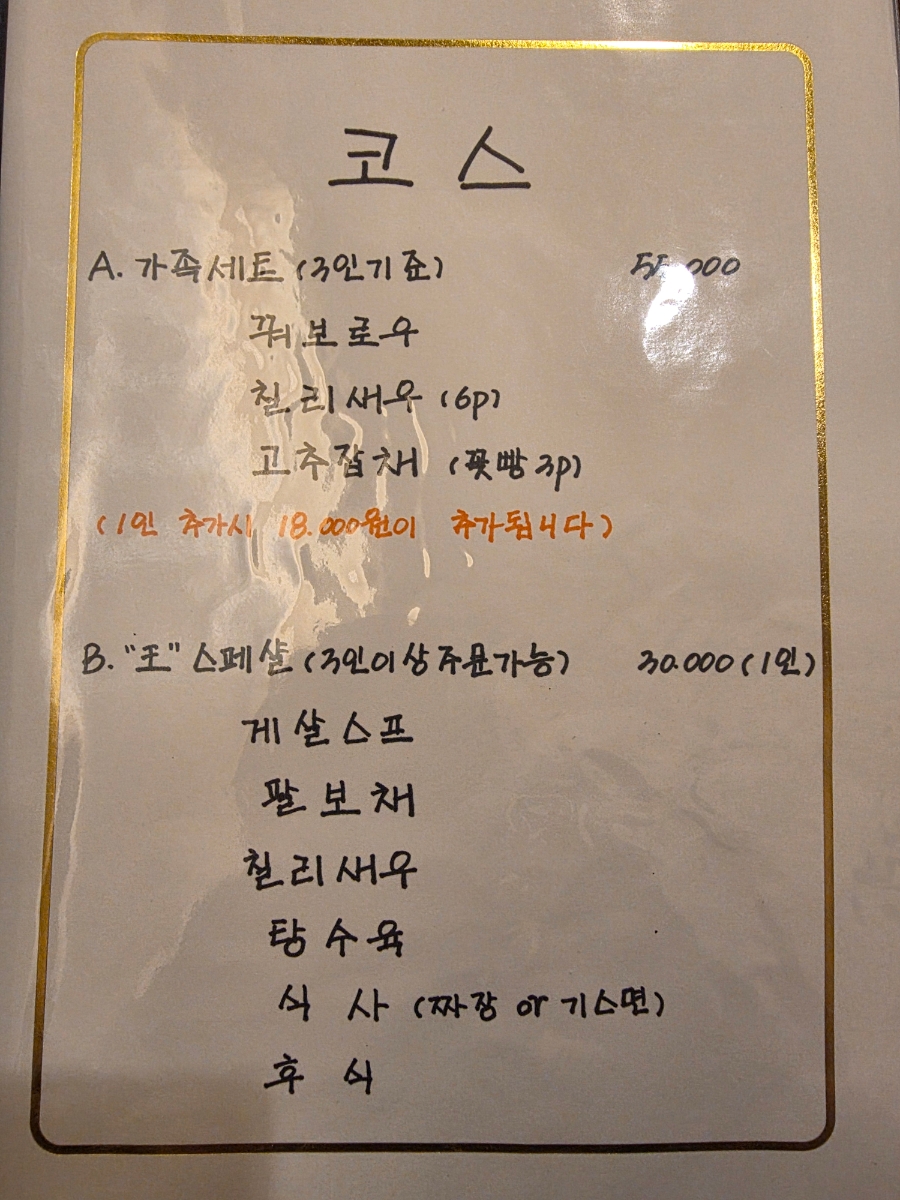 코스
A. 가족세트 (3인기준) 55.000
꿔보로우
칠리새우 (6p)
고추잡채 (꽃빵 3p)
(1인 추가시 18.000원이 추가됩니다)
B. "王" 스페샬 (3인이상주문가능) 30.000 (1인)
게살스프
팔보채
칠리새우
탕수육
식사 (짜장 or 기스면)
후식